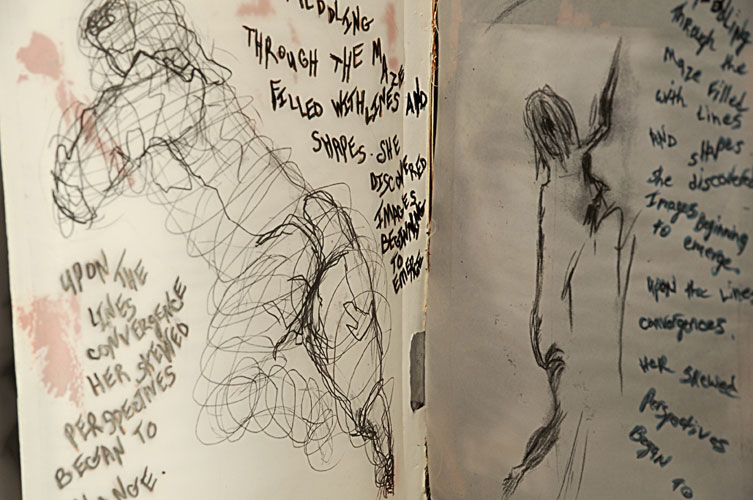 THROUGH THE MAZE
FILLED WITH LINES AND
SHAPES. SHE
DISCOVERED
IMAGES
BEGINNING
TO
EMERGE
UPON THE
LINES
CONVERGENCE
HER SKEWED
PERSPECTIVES
BEGAN TO
Through the
Maze Filled
with Lines
AND shapes
she discovered
Images Beginning
to emerge
upon the Lines
convergences.
Her skewed
Perspectives
Began
to